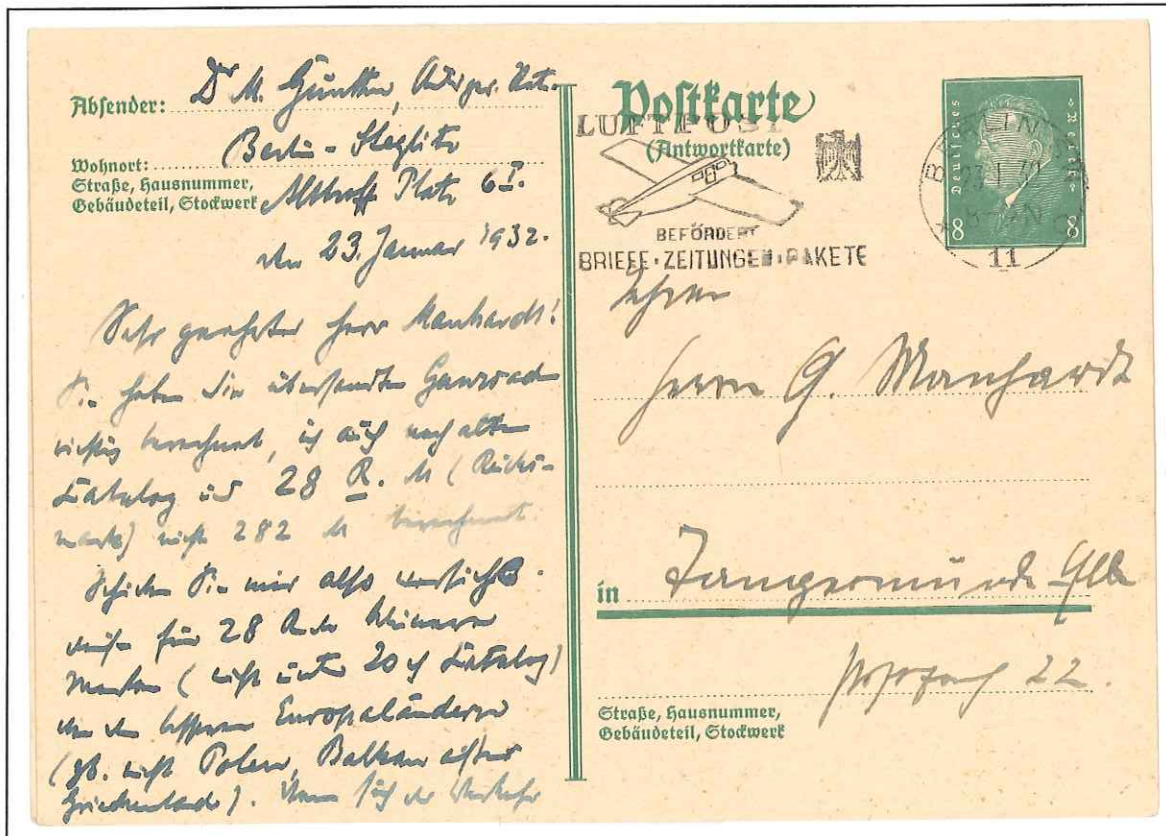 Absender: Dr M. Günther,
Wohnort: Berlin-Steglitz
Straße, Hausnummer,
Gebäudeteil, Stockwerk Althoff Platz 6 I.
den 23. Januar 1932.
Sehr geehrter Herr Manhardt!
Sie haben die übersandten
richtig berechnet, ich auch nach altem
Katalog 28 R. M (Reichs-
mark) nicht 282 M berechnet.
Schicken Sie mir also
für 28 R.M kleinere
Marken (nicht unter 20 Katalog)
von den besseren Europaländern
(nicht Polen, Balkan außer
Griechenland). Wenn sich der Verkehr
Postkarte
(Antwortkarte)
LUFTPOST
BEFÖRDERT
BRIEFE · ZEITUNGEN · PAKETE
Deutsches Reich
8 8
BERLIN
23.1.32
11
Herrn
Herrn G. Manhardt
in Tangermünde Elbe
Postfach 22.
Straße, Hausnummer,
Gebäudeteil, Stockwerk